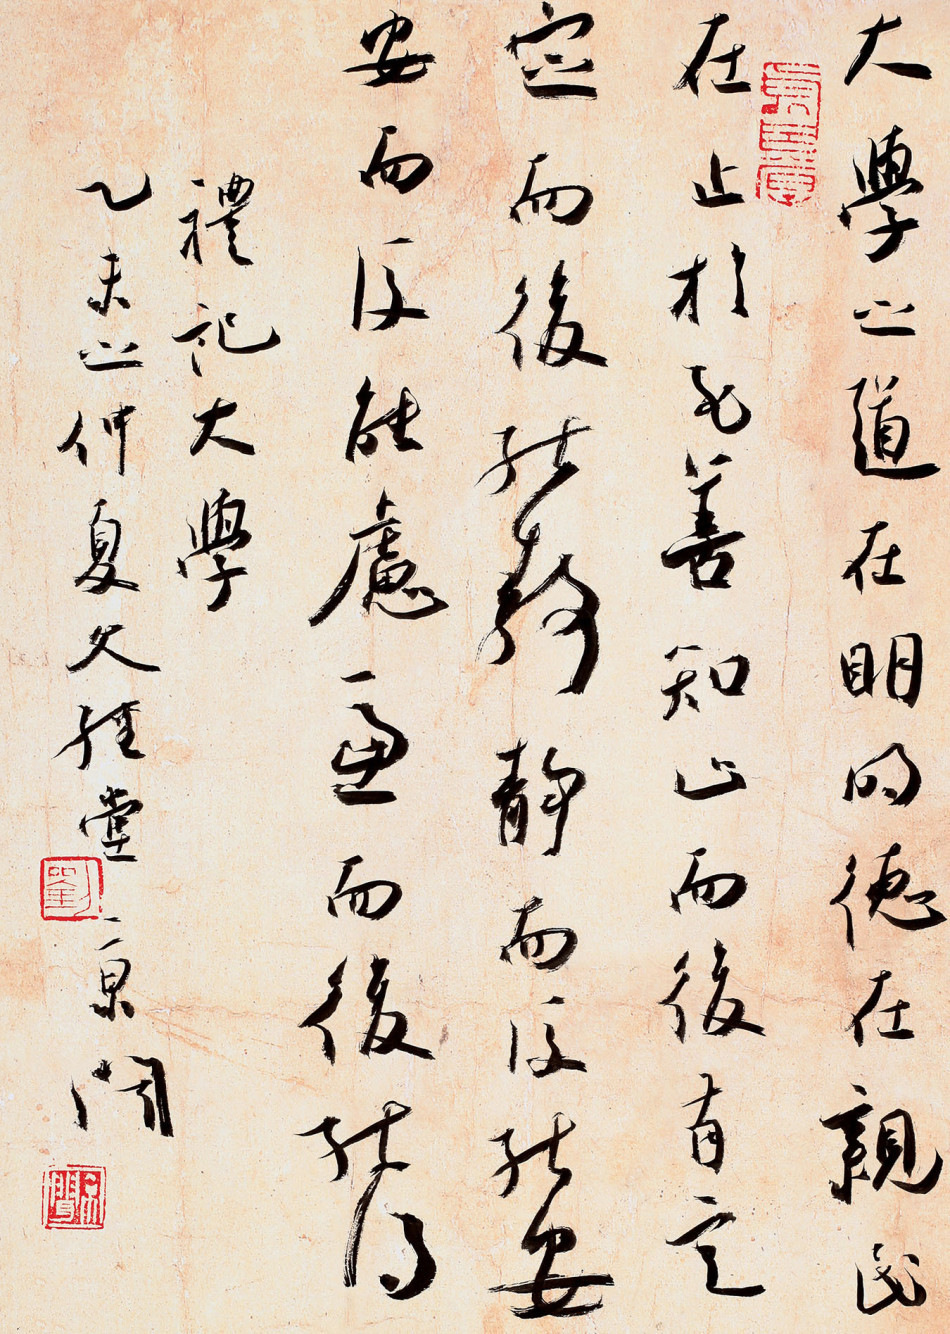 大學之道在明明德在親民
在止於至善知止而後有定
定而後能靜靜而後能安
安而後能慮慮而後能得
禮記大學
乙未之仲夏文經堂京
劉